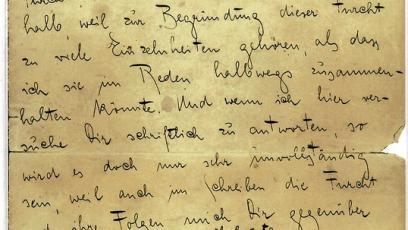 halb, weil zur Begründung dieser Furcht
zu viele Einzelnheiten gehören, als dass
ich sie im Reden halbwegs zusammen-
halten könnte. Und wenn ich hier ver-
suche Dir schriftlich zu antworten, so
wird es doch nur sehr unvollständig
sein, weil auch im Schreiben die Furcht
und ihre Folgen mich Dir gegenüber